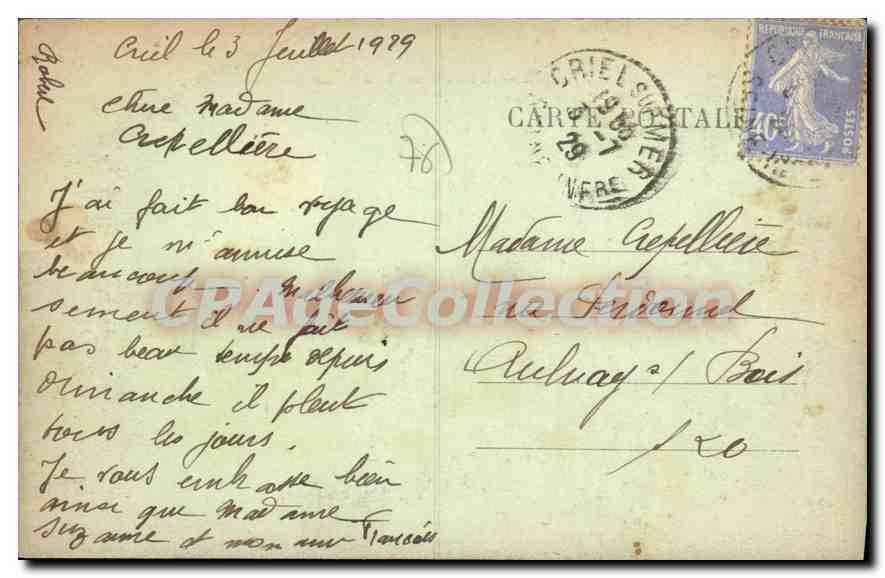 Robert
Criel le 3 Juillet 1929
chère Madame
Crepellière
J'ai fait bon voyage
et je m'amuse
beaucoup Malheureu
sement il ne fait
pas beau temps depuis
dimanche il pleut
tous les jours.
Je vous embrasse bien
ainsi que Madame
Suzanne et mon ami Francois
76
CARTE POSTALE
CRIEL SUR MER
29
REPUBLIQUE FRANÇAISE
40c
POSTES
Madame Crepellière
Aulnay s/ Bois
CPAgeCollection